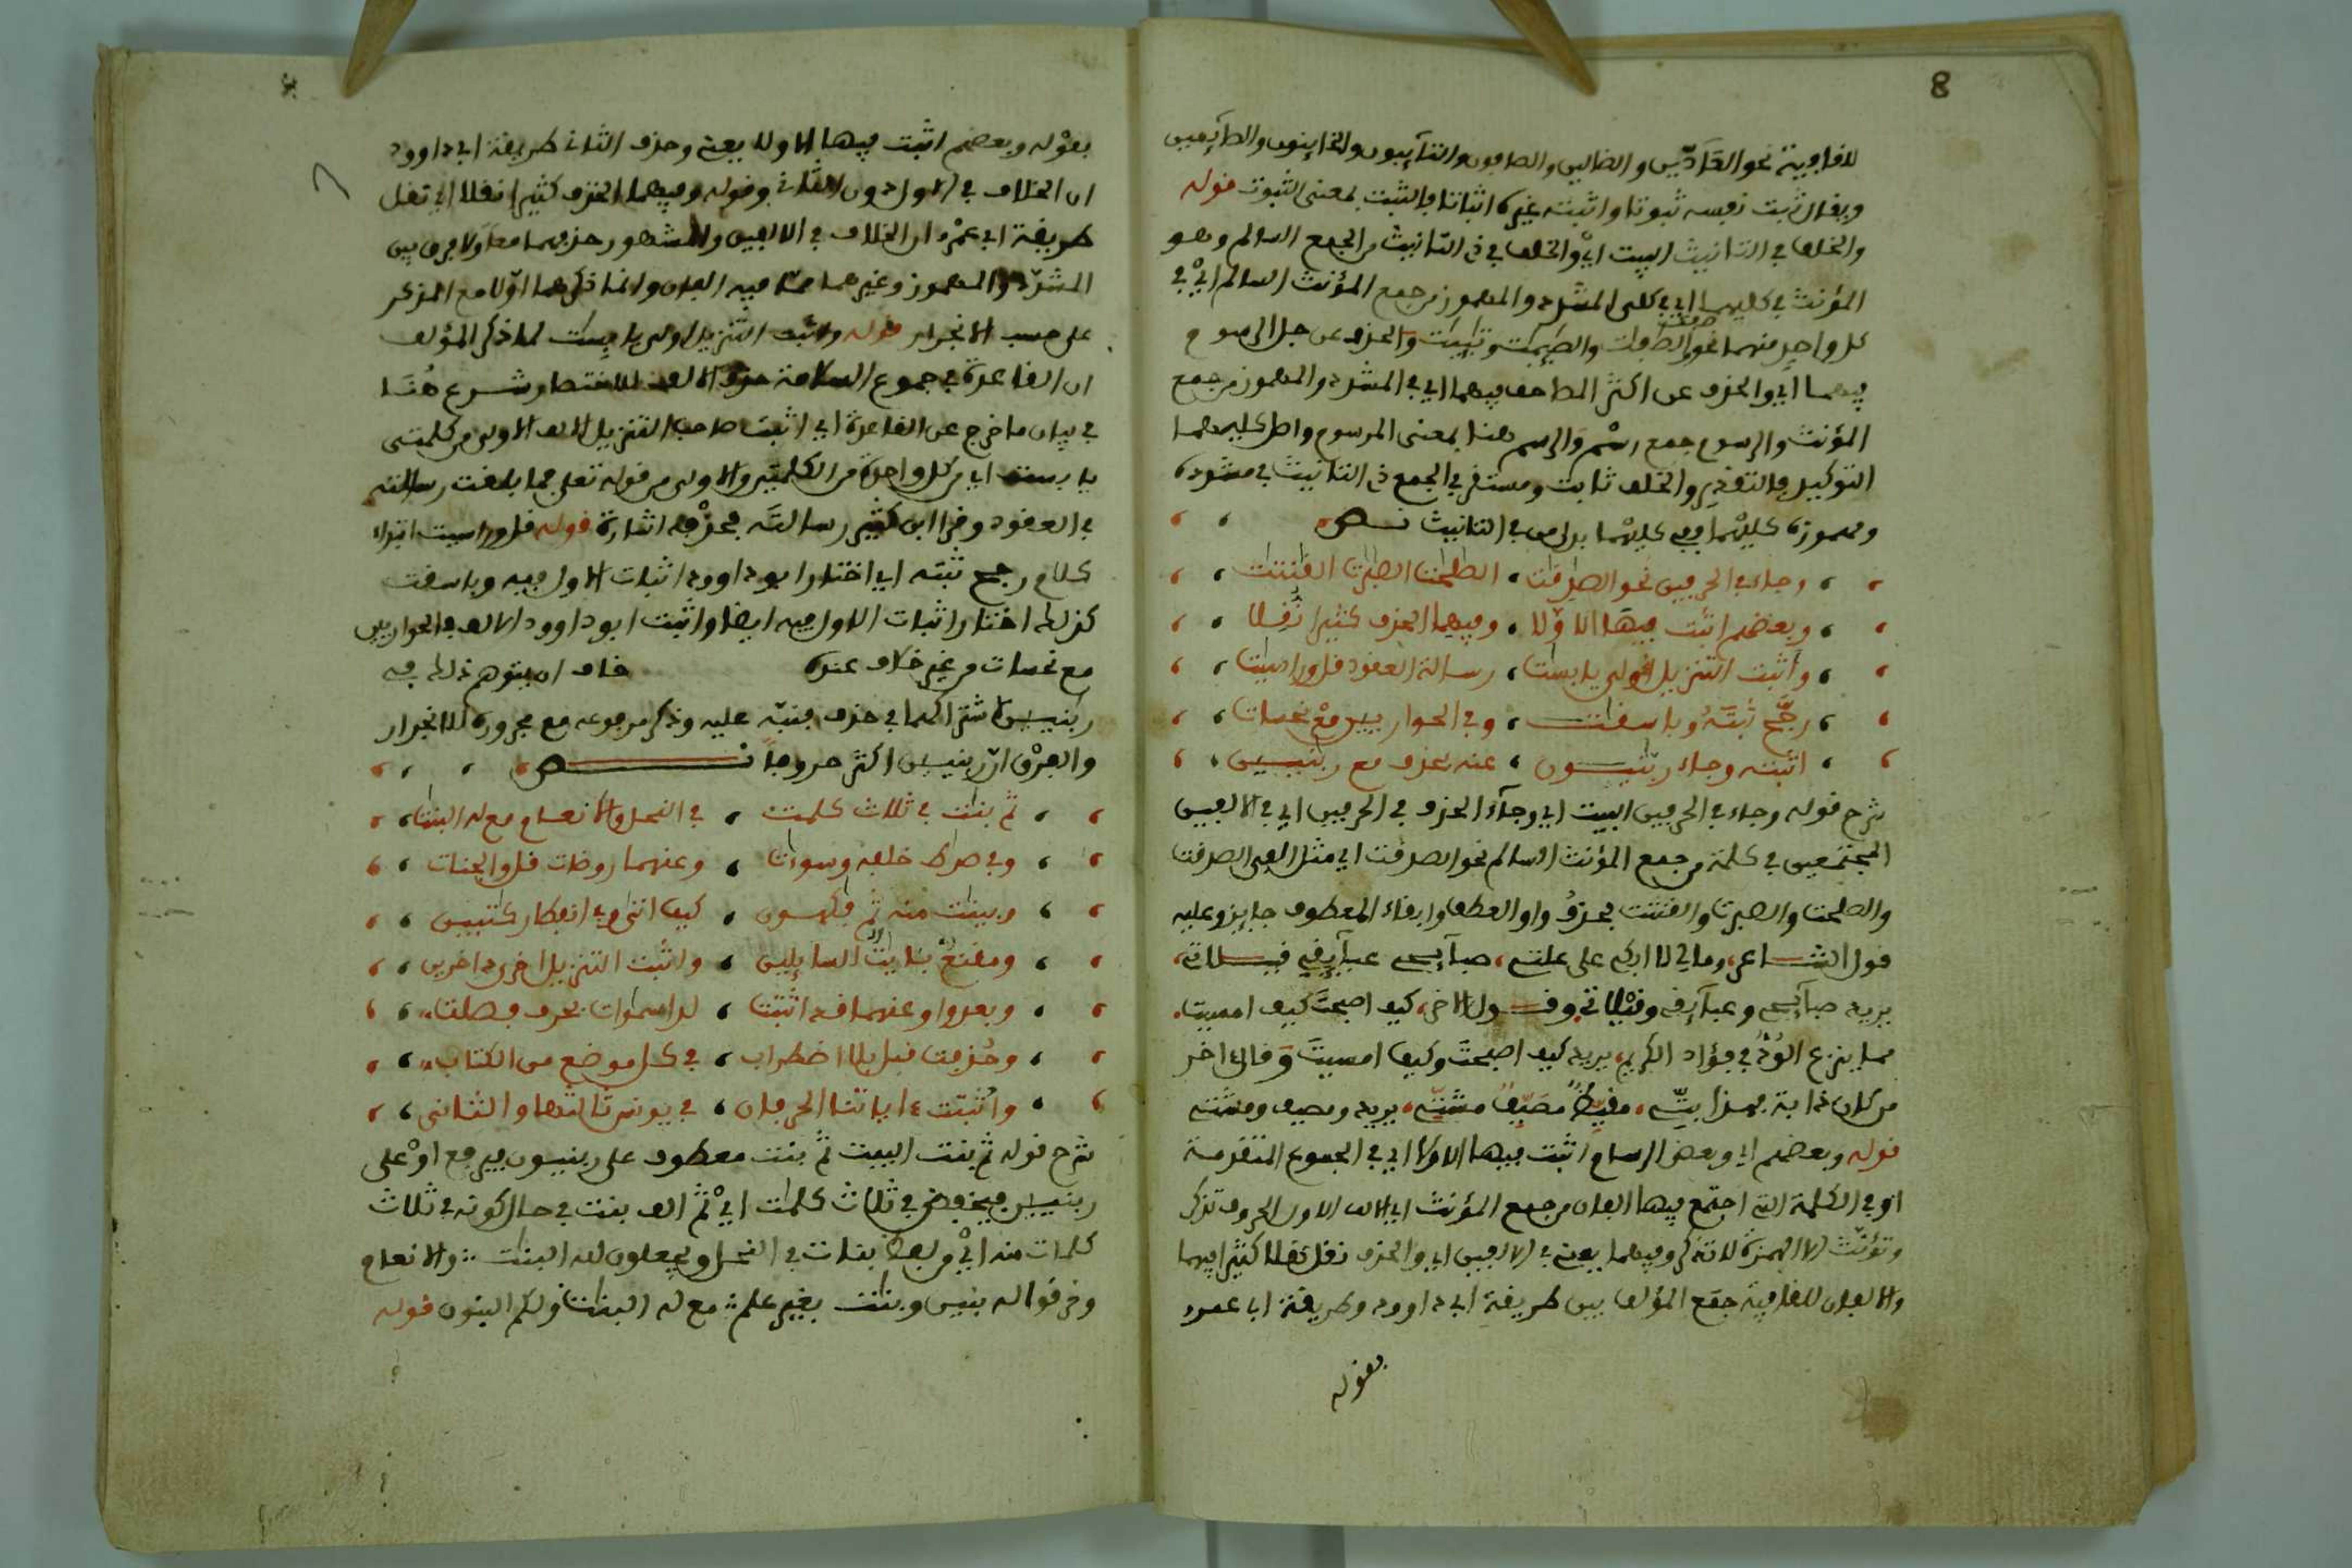 8
للقافية نحو العآدين والضالين والصافون والتآيبون والخاينون والطآيعين
ويقال ثبت نفسه ثبوتا واثبته غيره اثباتا فالثبت بمعنى الثبوت قوله
والخلف في التانيث البيت اي والخلف في ذي التانيث من الجمع السالم وهو
المؤنث في كليهما اي في كلى المشدد والمهموز من جمع المؤنث السالم اي في
كل واحد منهما نحو الصافات والصٰٓيمٰت وتٰٓيبٰت والحذف عن جل الرسوم
فيهما اي والحذف عن اكثر المصاحف فيهما اي في المشدد والمهموز من جمع
المؤنث والرسوم جمع رسم والرسم هنا بمعنى المرسوم واصل كليهما
التوكيد فالتقدير والخلف ثابت ومستقر في الجمع ذي التانيث في مشدده
ومهموزه كليهما ففي كليهما بدل من في التانيث نص
وجاء في الحرفين نحو الصٰدقٰت ، الصٰلحٰت الصٰبرٰت القٰنتٰت
وبعضهم اثبت فيها الاوّلا ، وفيهما الحذف كثيرا نُقِلا
واثبت التنزيل اولى يابسٰت ، رسالة العقود قل وراسيٰت
رجّح ثبتَهُ وباسقٰت ، وفي الحواريين مع نحسات
اثبته وجاء ربّٰنيون ، عنه بحذف مع ربّٰنيين
شرح قوله وجاء في الحرفين البيت اي وجآء الحذف في الحرفين اي في الالفين
المجتمعين في كلمة من جمع المؤنث السالم نحو الصدقت اي مثل الفى الصدقت
والصلحت والصبرت والقنتت بحذف واو العطف وابقاء المعطوف جايز وعليه
قول الشاعر، ومالي لا ابكي على علتي، صبآيحي غبآيقي قيلاتي،
يريد صبآيحي وغبآيقي وقيْلاتي وقول الاخر، كيف اصبحتَ كيف امسيت،
مما يزرع الوُدّ في فؤاد الكريم، يريد كيف اصبحتَ وكيف امسيتَ وقال اخر
من كان ذا بت فهذا بتّي، مقيّظٌ مصيّفٌ مشتّي، يريد ومصيف ومشتي
قوله وبعضهم اي وبعض الرسام اثبت فيها الاولا اي في الجموع المتقدمة
او في الكلمة التي اجتمع فيها الفان من جمع المؤنث اي الالف الاول الحروف تذكر
وتؤنث الا الهمزة لا تذكر وفيهما يعني في الالفين اي والحذف نقل نقلا كثيرا فيهما
والالفان للقافية جمع المؤلف بين طريقة ابي داوود وطريقة ابا عمرو
بقوله
بقوله وبعضهم اثبت فيها الاولا يعني وحذف الثاني طريقة ابي داوود
ان الخلاف في الاول دون الثاني وقوله وفيهما الحذف كثيرا نقلا اي نقل
طريقة ابي عمرو ان الخلاف في الالفين والمشهور حذفهما معا ولا فرق بين
المشدّد والمهموز وغيرهما مما فيه الفان وانما ذكرهما اوّلا مع المذكر
على حسب الانجرار قوله واثبت التنزيل اولى يابسٰت لما ذكر المؤلف
ان القاعدة في جموع السلامة حذف الالف للاختصار شرع هُنَا
في بيان ما خرج عن القاعدة اي اثبت صاحب التنزيل الالف الاولى من كلمتى
يابسٰت اي من كل واحدة من الكلمتين والاولى من قوله تعلى فما بلغت رسالته
في العقود وقرا ابن كثير رسالتَه فحذْفه اشارة قوله قل وراسيت ابتداء
كلام رجح ثبته اي اختار ابو داوود اثبات الاول فيه وباسقت
كذلك اختار اثبات الاول فيه ايضا واثبت ابو داوود الالف في الحواريين
مع نحسات من غير خلاف عنده خاف ان يتوهم ذلك في
ربٰنيين لاشتراكهما في حذف فنبّه عليه وذكر مرفوعه مع مجروره للانجرار
والفرْق انّ ربنيين اكثر حروفاً نص
ثم بنٰت في ثلاث كلمت ، في النحل والانعام مع له البنٰت
وفي صراط خلفه وسوءٰت ، وعنهما روضات قل والجنات
وبينٰت منه ثم فٰكهون ، كيف اتى وفي انفطار كٰتبين
ومقنع بئايٰت السايلين ، واثبت التنزيل اخرى داخرين
وبعد واو عنهما قد اثبتت ، لدا سمٰوات بحرف فصلت
وحُذفت قبل بلا اضطراب ، في كل موضع من الكتاب
واثبتت ءاياتنا الحرفان ، في يونس ثالثها والثاني
شرح قوله ثم بنت البيت ثمّ بنت معطوف على ربنيون فيرفع اوْ على
ربنيين فيخفض في ثلاث كلمٰت اي ثمّ الف بنت في حال كونه في ثلاث
كلمات منه اي من لفظ بنات في النحل ويجعلون لله البنٰت والانعام
وخرقوا له بنين وبنٰت بغير علم مع له البنٰت ولكم البنون قوله